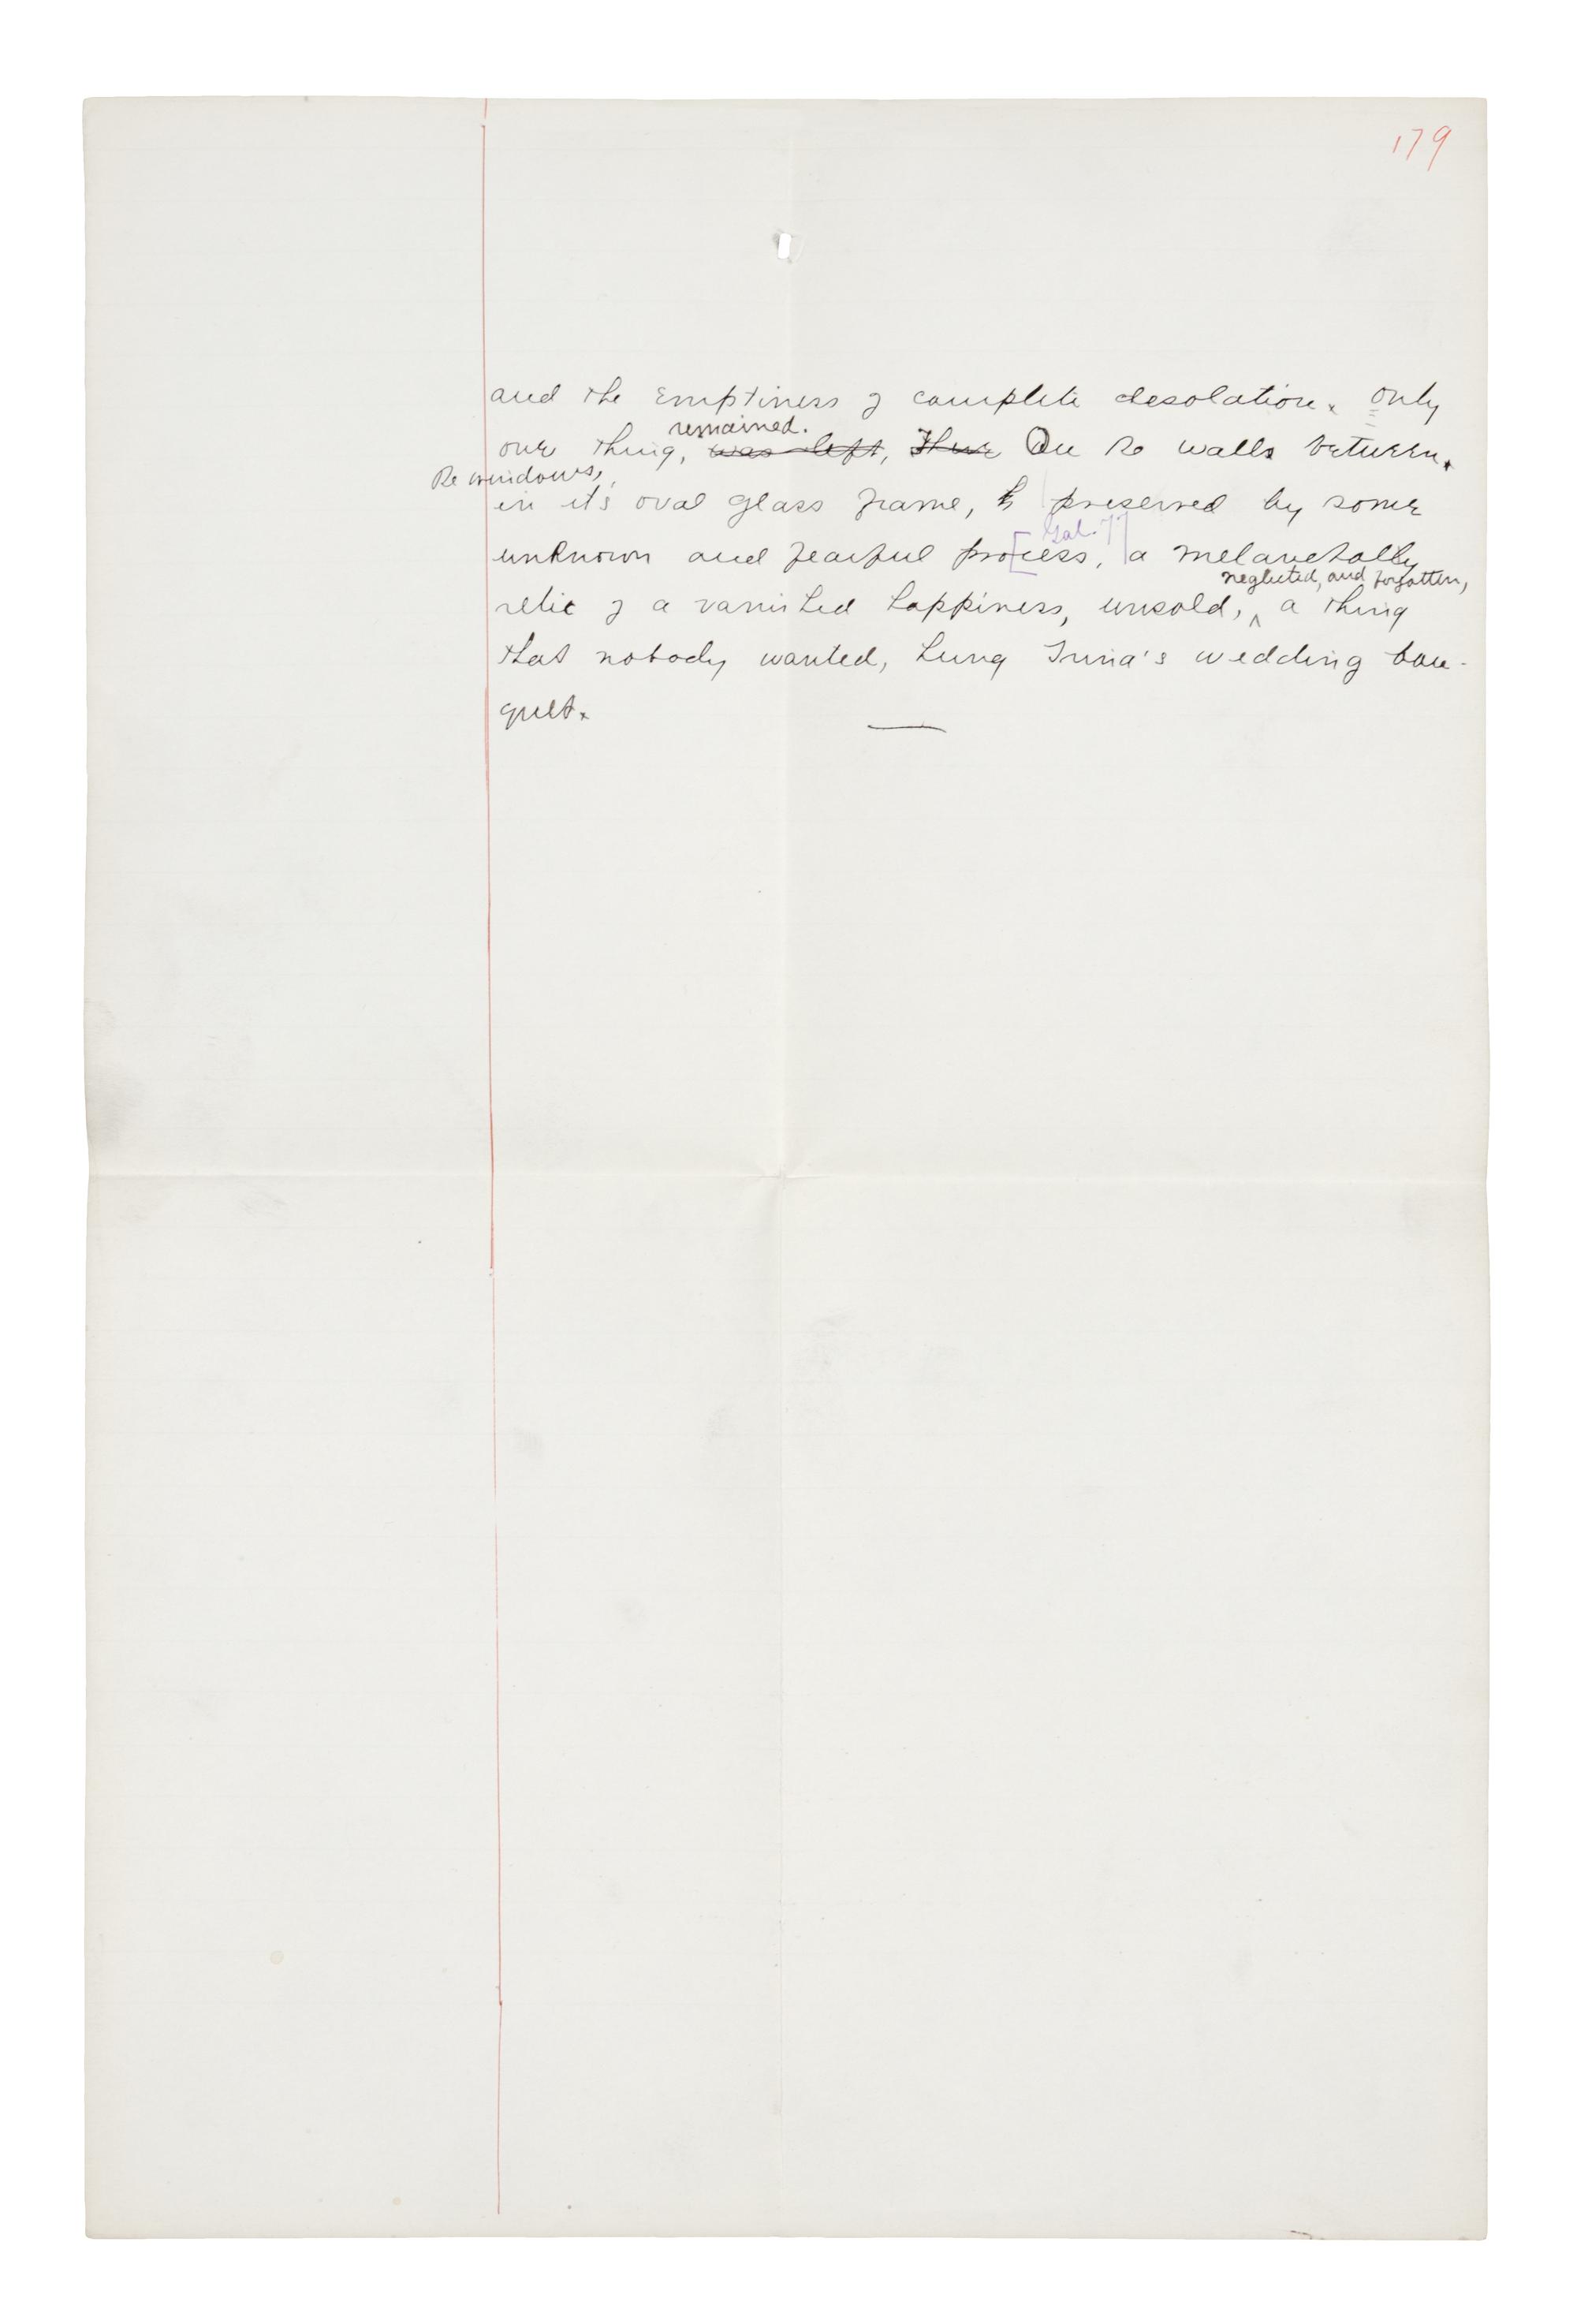 179
and the emptiness of complete desolation. Only
remained.
one thing, was left, There On the walls between.
the windows,
in it's oval glass frame, h preserved by some
Gal. 77
unknown and fearful process, a melancholly
neglected, and forgotten,
relic of a vanished happiness, unsold, ^ a thing
that nobody wanted, hung Trina's wedding bou-
quet.